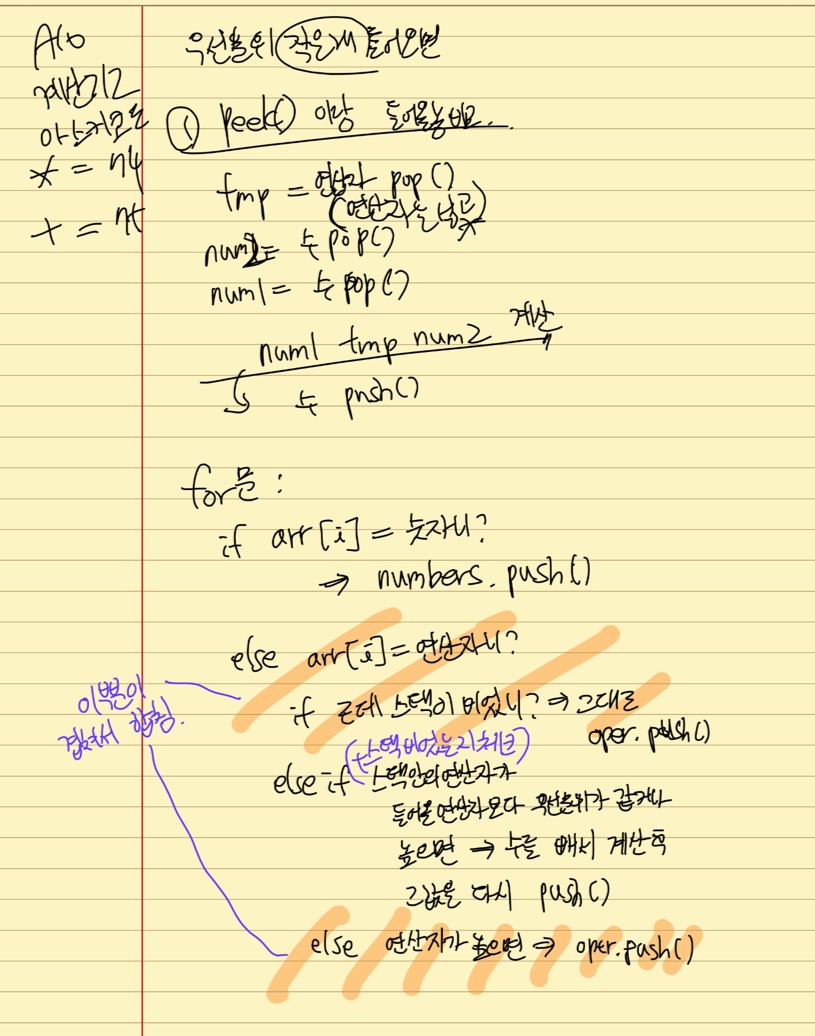 A10
계산기2
아스키코드
* = 74
+ = 75
우선순위 작은게 들어오면
① peek() 이랑 들어올놈비교.
tmp = 연산자 pop()
(연산자는 남고)
num2 = 수 pop()
num1 = 수 pop()
num1 tmp num2 계산
수 push()
for문 :
if arr[i] = 숫자니?
→ numbers. push()
else arr[i] = 연산자니?
if 근데 스택이 비었니? ⇒ 그대로
oper. push()
이부분이
겹쳐서 합침.
(+스택비었는지체크)
else if 스택안의연산자가
들어올연산자보다 우선순위가 같거나
높으면 → 수를 빼서 계산후
그값을 다시 push()
else 연산자가 높으면 ⇒ oper.push()